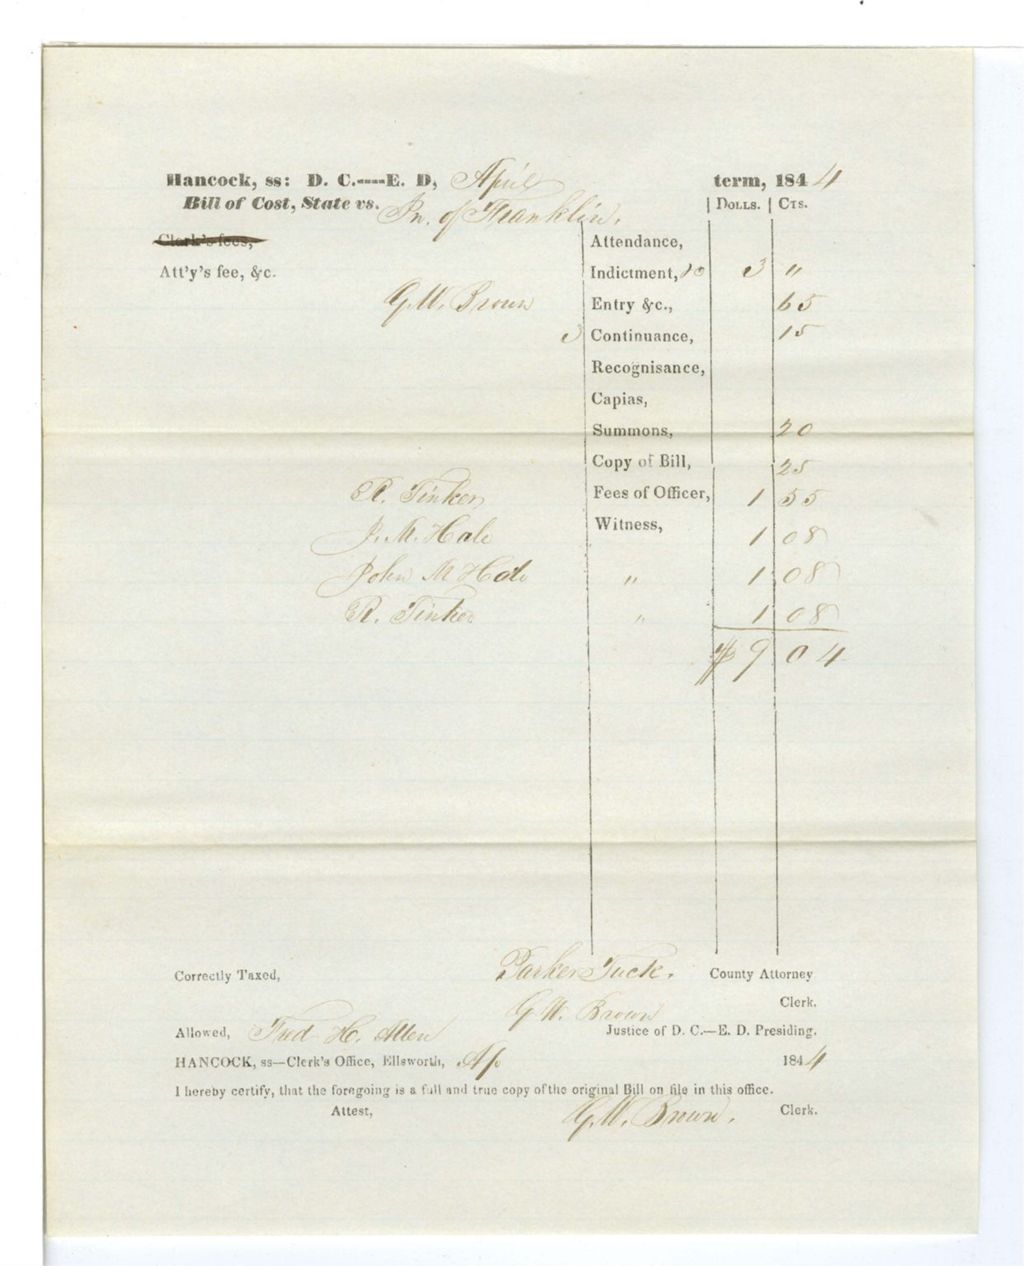 Hancock, ss: D. C.---E. D, April term, 1844
Bill of Cost, State vs. Pn. of Franklin. | DOLLS. | CTS.
Clerk's fees, Attendance,
Att'y's fee, &c. Indictment, 10 3 "
G. W. Brown Entry &c., 65
3 Continuance, 15
Recognisance,
Capias,
Summons, 20
Copy of Bill, 25
R. Tinker Fees of Officer, 1 55
J. M. Hale Witness, 1 08
John M Hale " 1 08
R. Tinker " 1 08
$9 04
Correctly Taxed, Parker Tuck. County Attorney
G. W. Brown Clerk.
Allowed, Fred H. Allen Justice of D. C.—E. D. Presiding.
HANCOCK, ss—Clerk's Office, Ellsworth, Ap 1844
I hereby certify, that the foregoing is a full and true copy of the original Bill on file in this office.
Attest, G. W. Brown. Clerk.